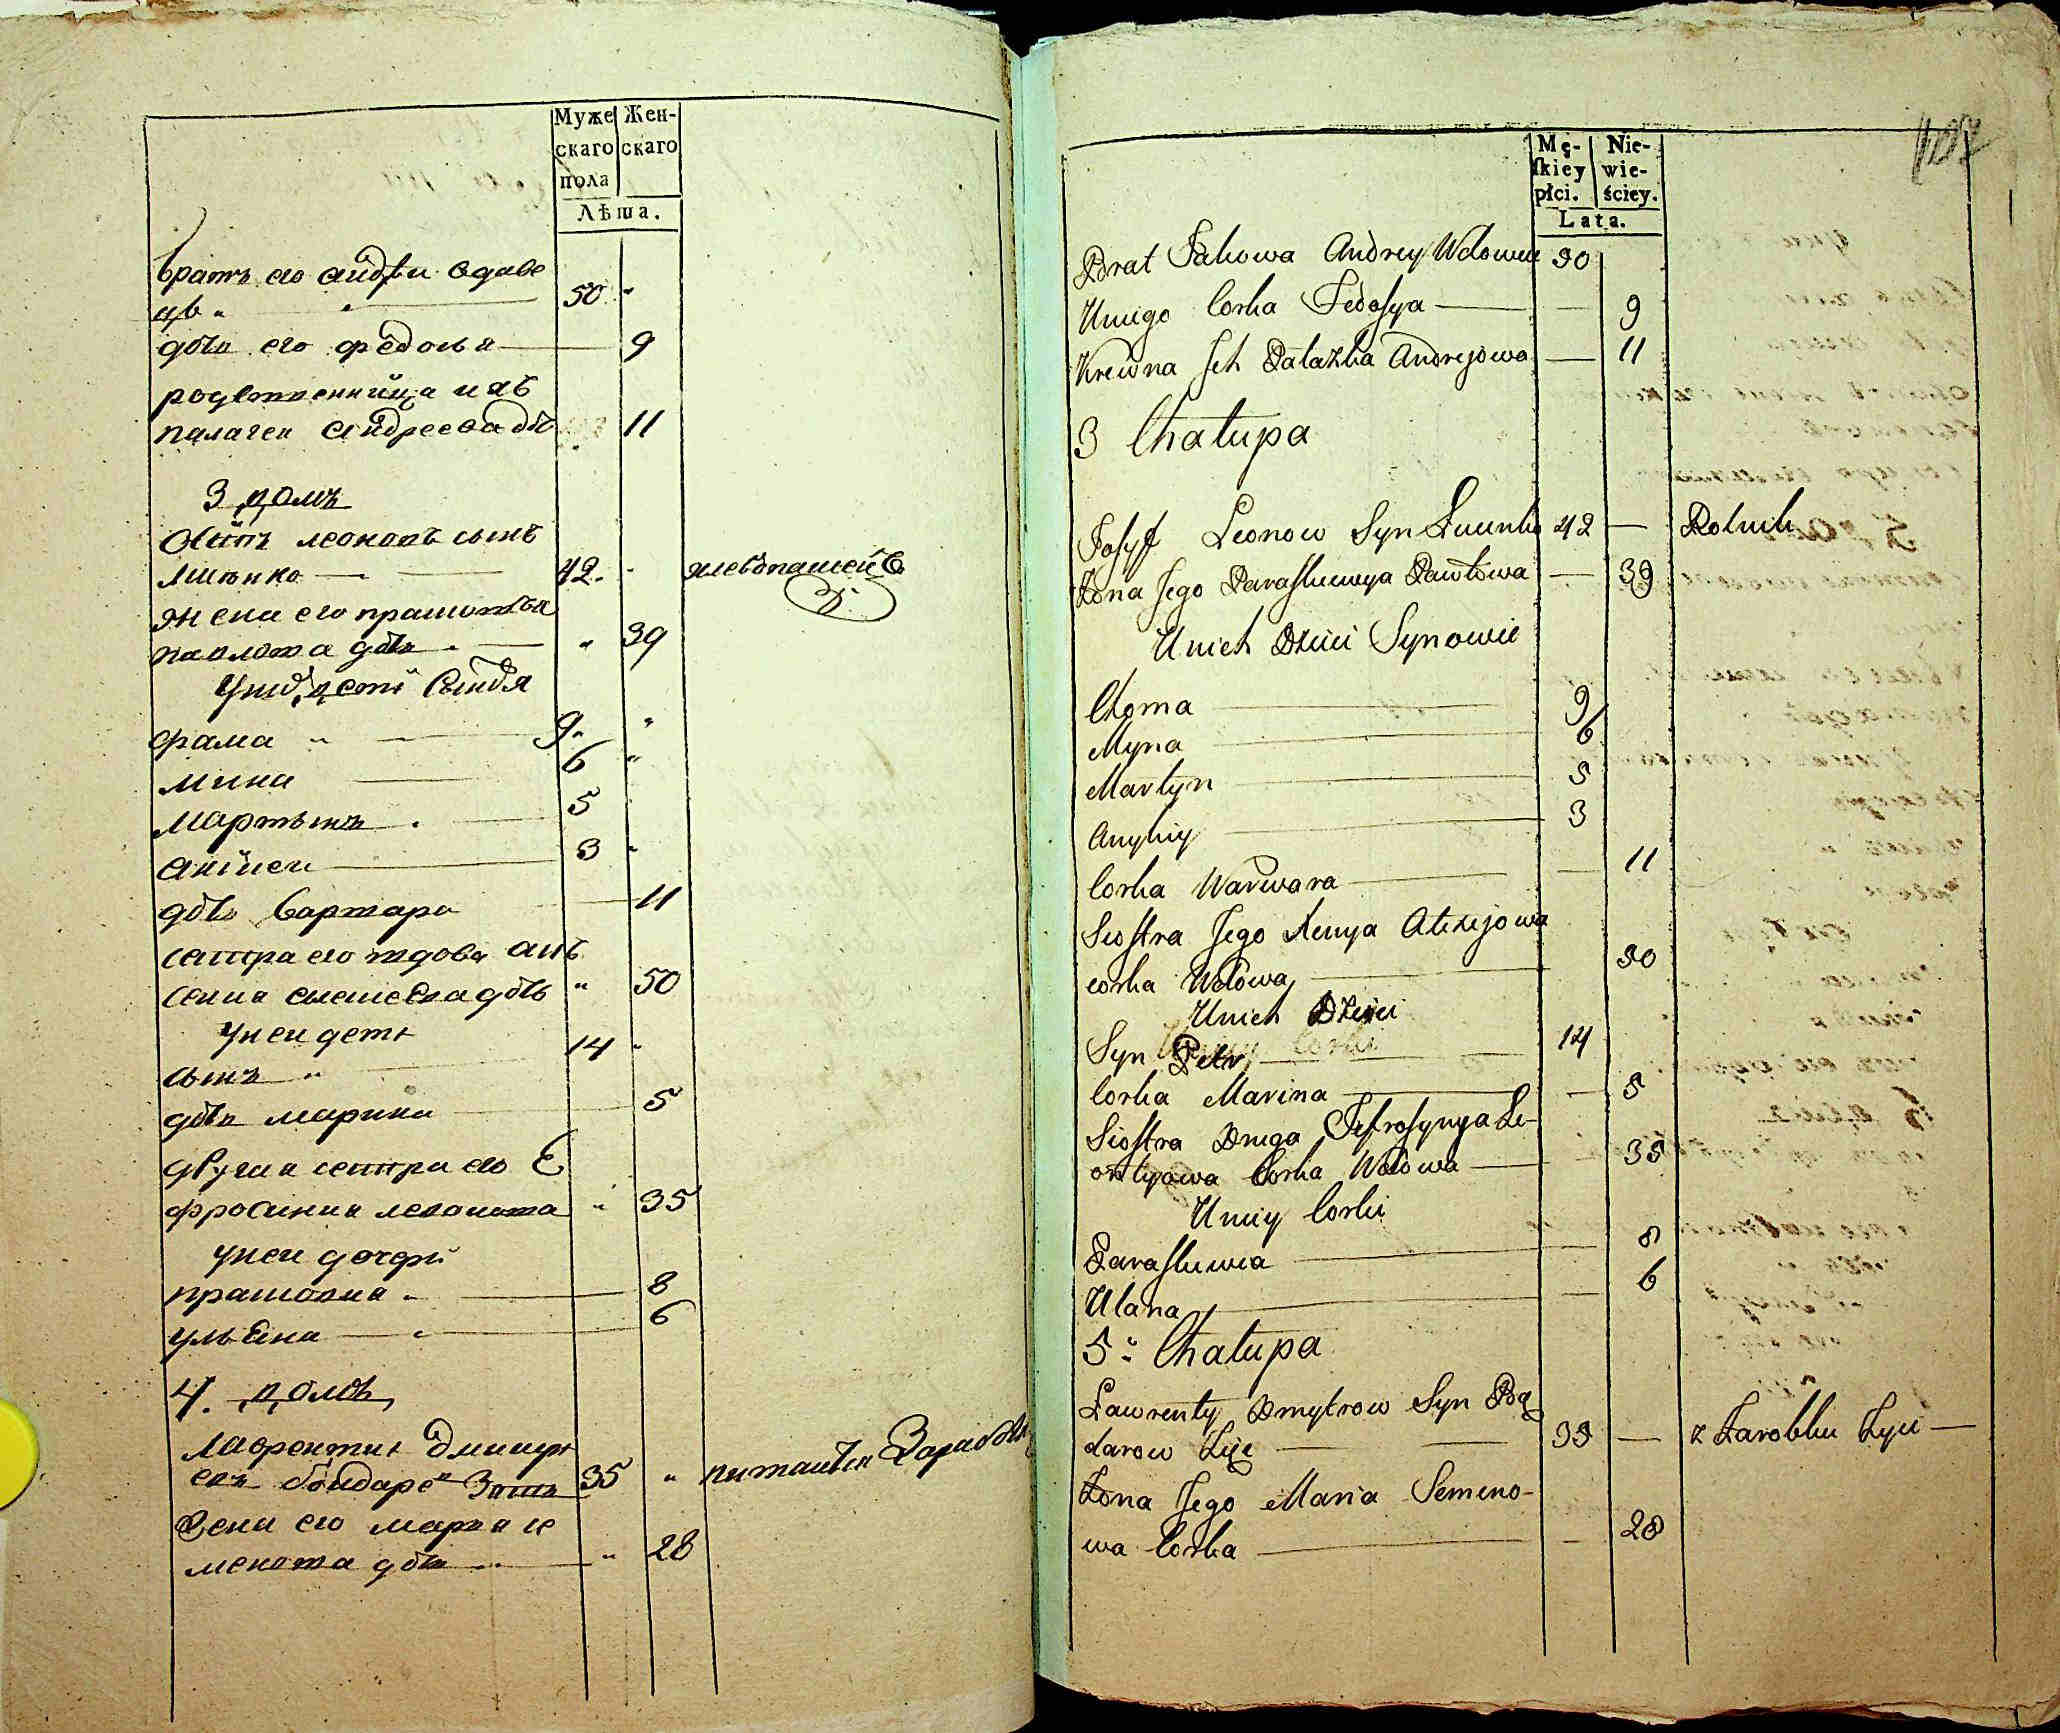 Муже Жен-
скаго скаго
пола
Лѣта.
братъ его андреи вдове
цъ 50
дочь его федосья 9
родственница ихъ
палагея андреева дочь 11
3 домъ
Осипъ леоновъ сынъ
42 хлебопашецъ
жена его прасковья
павлова дочь 39
У них дети Сыновя
фама 9
мина 6
мартынъ 5
3
дочь варвара 11
сестра его вдова
алексеева дочь 50
У ней дети
сынъ 14
дочь марина 5
другая сестра его Е
фросиния 35
У ней дочери
прасковия 8
ульяна 6
4. домъ
лаврентии дмитри
евъ бондаре Зять 35 питается Заработк
Жена его мария се
менова дочь 28
Mę- Nie-
skiey wie-
płci. ściey.
Lata.
107
Brat Jakowa Andrey Wdowiec 50
Uniego Corka Fedosya 9
Krewna Jch Palazka Andrejowa 11
3 Chałupa
Josyf Leonow Syn 42 Rolnik
Żona Jego Paraskiewya Pawłowa 39
Unich Dzieci Synowie
Choma 9
Myna 6
Martyn 5
3
Corka Warwara 11
Siostra Jego Xenya Alexejowa
corka Wdowa 50
Unich Dzieci
Syn Petr 14
Corka Marina 5
Siostra Druga Jefrosynya Le-
ontyowa Corka Wdowa 35
Uniey Corki
Paraskiewia 8
Ulana 6
5 Chałupa
Ławrenty Dmytrow Syn Bą
darow Zięć 35 z Zarobku Żyie
Żona Jego Maria Semeno-
wa Corka 28